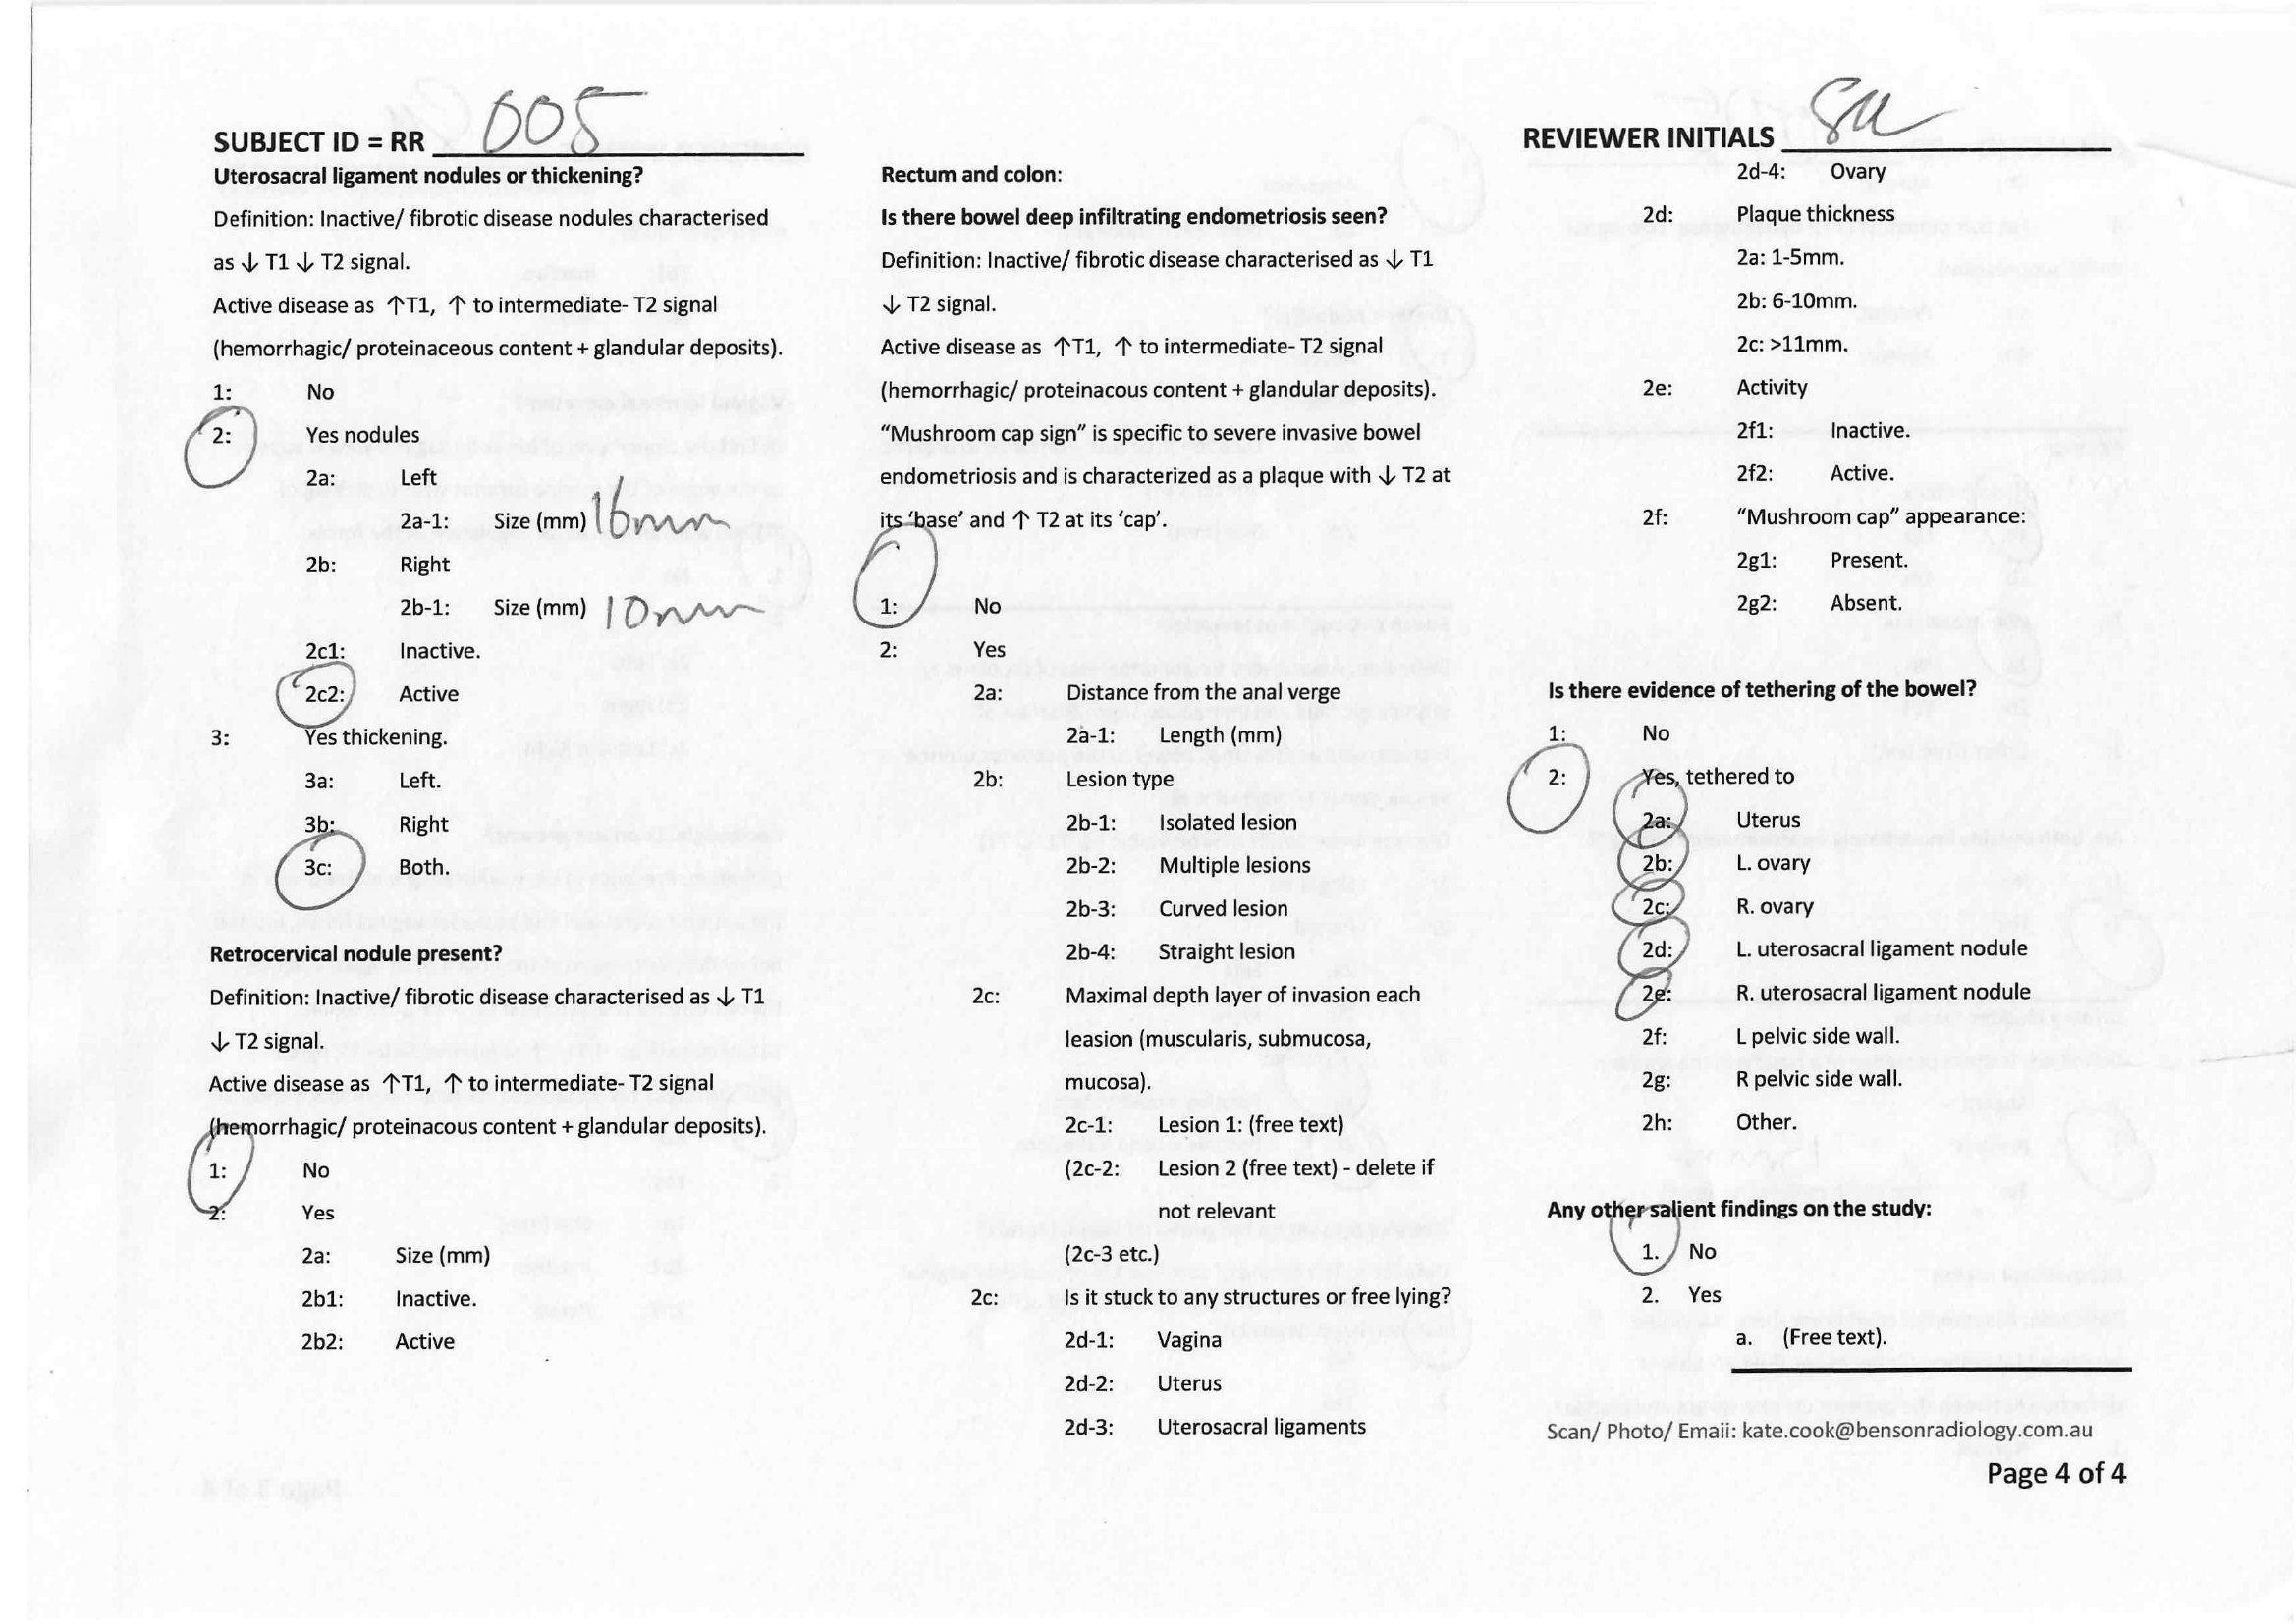 SUBJECT ID = RR 005
Uterosacral ligament nodules or thickening?
Definition: Inactive/ fibrotic disease nodules characterised
as ↓ T1 ↓ T2 signal.
Active disease as ↑T1, ↑ to intermediate- T2 signal
(hemorrhagic/ proteinaceous content + glandular deposits).
1: No
2: Yes nodules
2a: Left
2a-1: Size (mm) 16mm
2b: Right
2b-1: Size (mm) 10mm
2c1: Inactive.
2c2: Active
3: Yes thickening.
3a: Left.
3b: Right
3c: Both.
Retrocervical nodule present?
Definition: Inactive/ fibrotic disease characterised as ↓ T1
↓ T2 signal.
Active disease as ↑T1, ↑ to intermediate- T2 signal
(hemorrhagic/ proteinacous content + glandular deposits).
1: No
2: Yes
2a: Size (mm)
2b1: Inactive.
2b2: Active
Rectum and colon:
Is there bowel deep infiltrating endometriosis seen?
Definition: Inactive/ fibrotic disease characterised as ↓ T1
↓ T2 signal.
Active disease as ↑T1, ↑ to intermediate- T2 signal
(hemorrhagic/ proteinacous content + glandular deposits).
“Mushroom cap sign” is specific to severe invasive bowel
endometriosis and is characterized as a plaque with ↓ T2 at
its ‘base’ and ↑ T2 at its ‘cap’.
1: No
2: Yes
2a: Distance from the anal verge
2a-1: Length (mm)
2b: Lesion type
2b-1: Isolated lesion
2b-2: Multiple lesions
2b-3: Curved lesion
2b-4: Straight lesion
2c: Maximal depth layer of invasion each
leasion (muscularis, submucosa,
mucosa).
2c-1: Lesion 1: (free text)
(2c-2: Lesion 2 (free text) - delete if
not relevant
(2c-3 etc.)
2c: Is it stuck to any structures or free lying?
2d-1: Vagina
2d-2: Uterus
2d-3: Uterosacral ligaments
REVIEWER INITIALS
2d-4: Ovary
2d: Plaque thickness
2a: 1-5mm.
2b: 6-10mm.
2c: >11mm.
2e: Activity
2f1: Inactive.
2f2: Active.
2f: “Mushroom cap” appearance:
2g1: Present.
2g2: Absent.
Is there evidence of tethering of the bowel?
1: No
2: Yes, tethered to
2a: Uterus
2b: L. ovary
2c: R. ovary
2d: L. uterosacral ligament nodule
2e: R. uterosacral ligament nodule
2f: L pelvic side wall.
2g: R pelvic side wall.
2h: Other.
Any other salient findings on the study:
1. No
2. Yes
a. (Free text).
Scan/ Photo/ Email: kate.cook@bensonradiology.com.au
Page 4 of 4